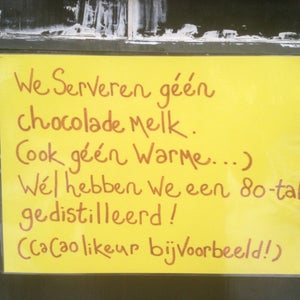 We Serveren géén
chocolade Melk.
(ook géén Warme...)
Wél hebben We een 80-tal
gedistilleerd!
(Cacao likeur bijvoorbeeld!)